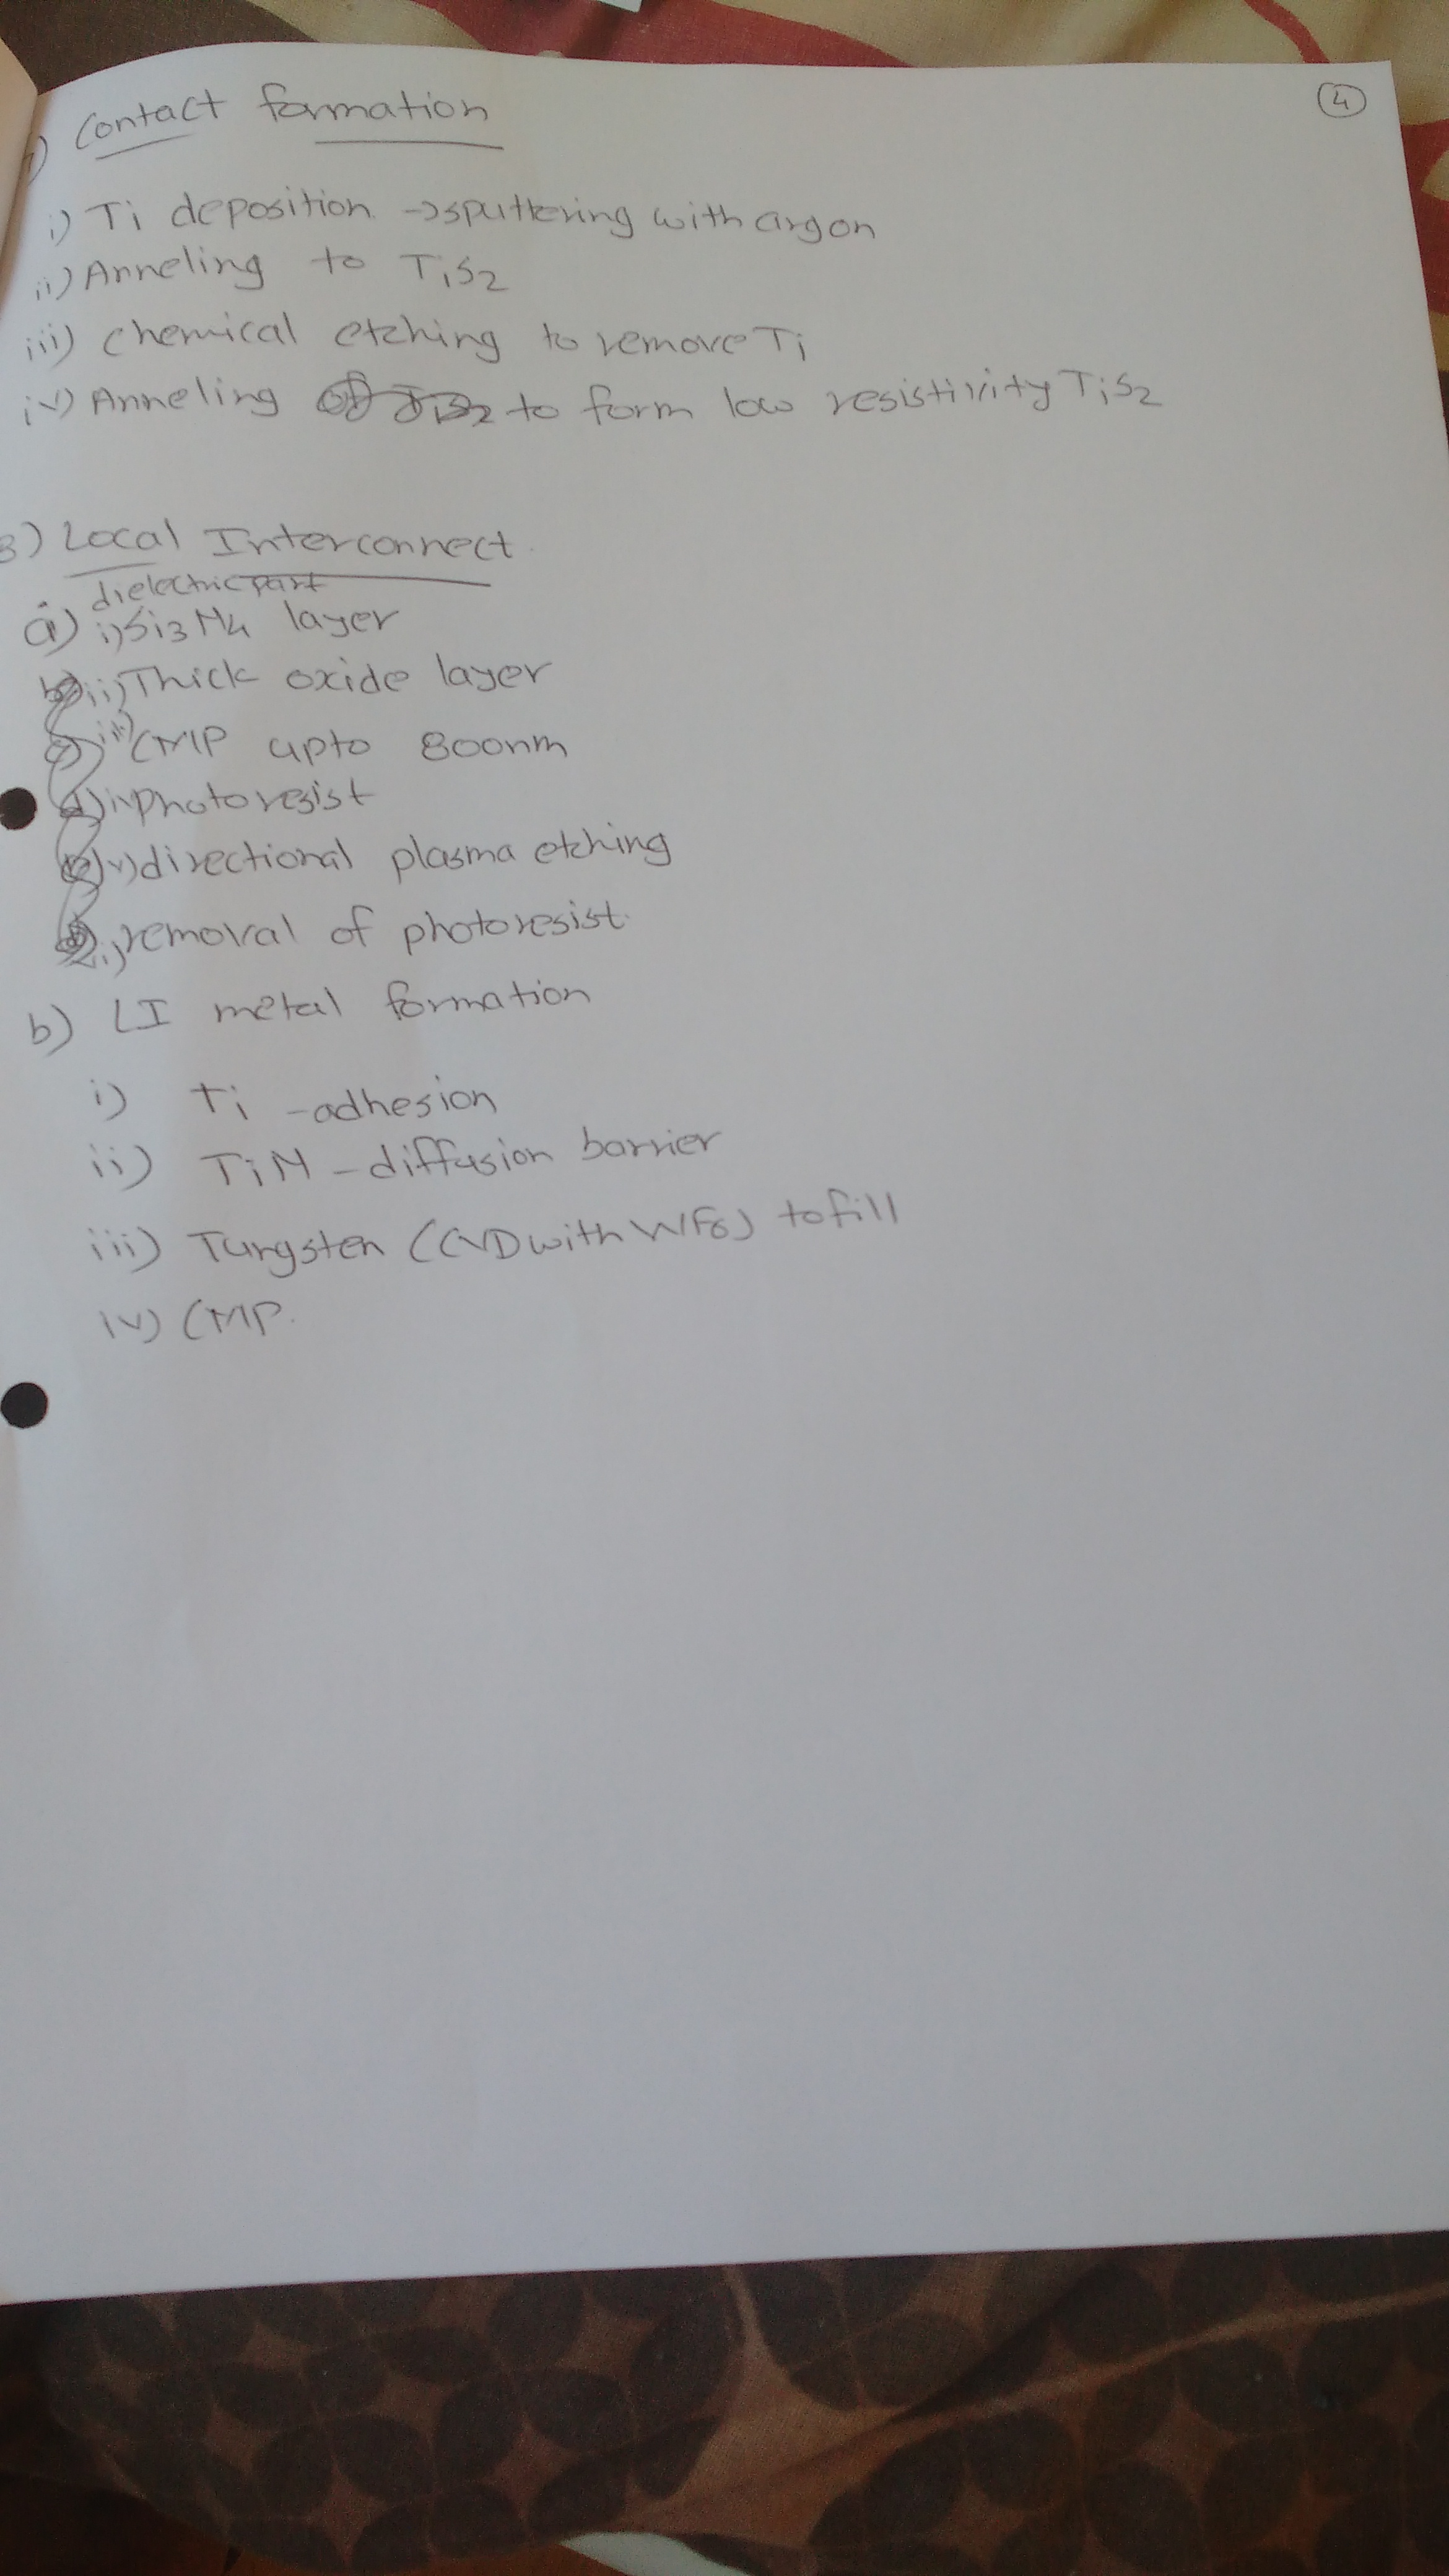 4
) Contact formation
i) Ti deposition →sputtering with argon
ii) Anneling to TiS2
iii) chemical etching to remove Ti
iv) Anneling to form low resistivity TiS2
3) Local Interconnect
dielectric part
a) i) Si3N4 layer
ii) Thick oxide layer
iii) CMP upto 800nm
iv) photoresist
v) directional plasma etching
removal of photoresist
b) LI metal formation
i) Ti - adhesion
ii) TiN - diffusion barrier
iii) Tungsten (CVD with WF6) to fill
iv) CMP.